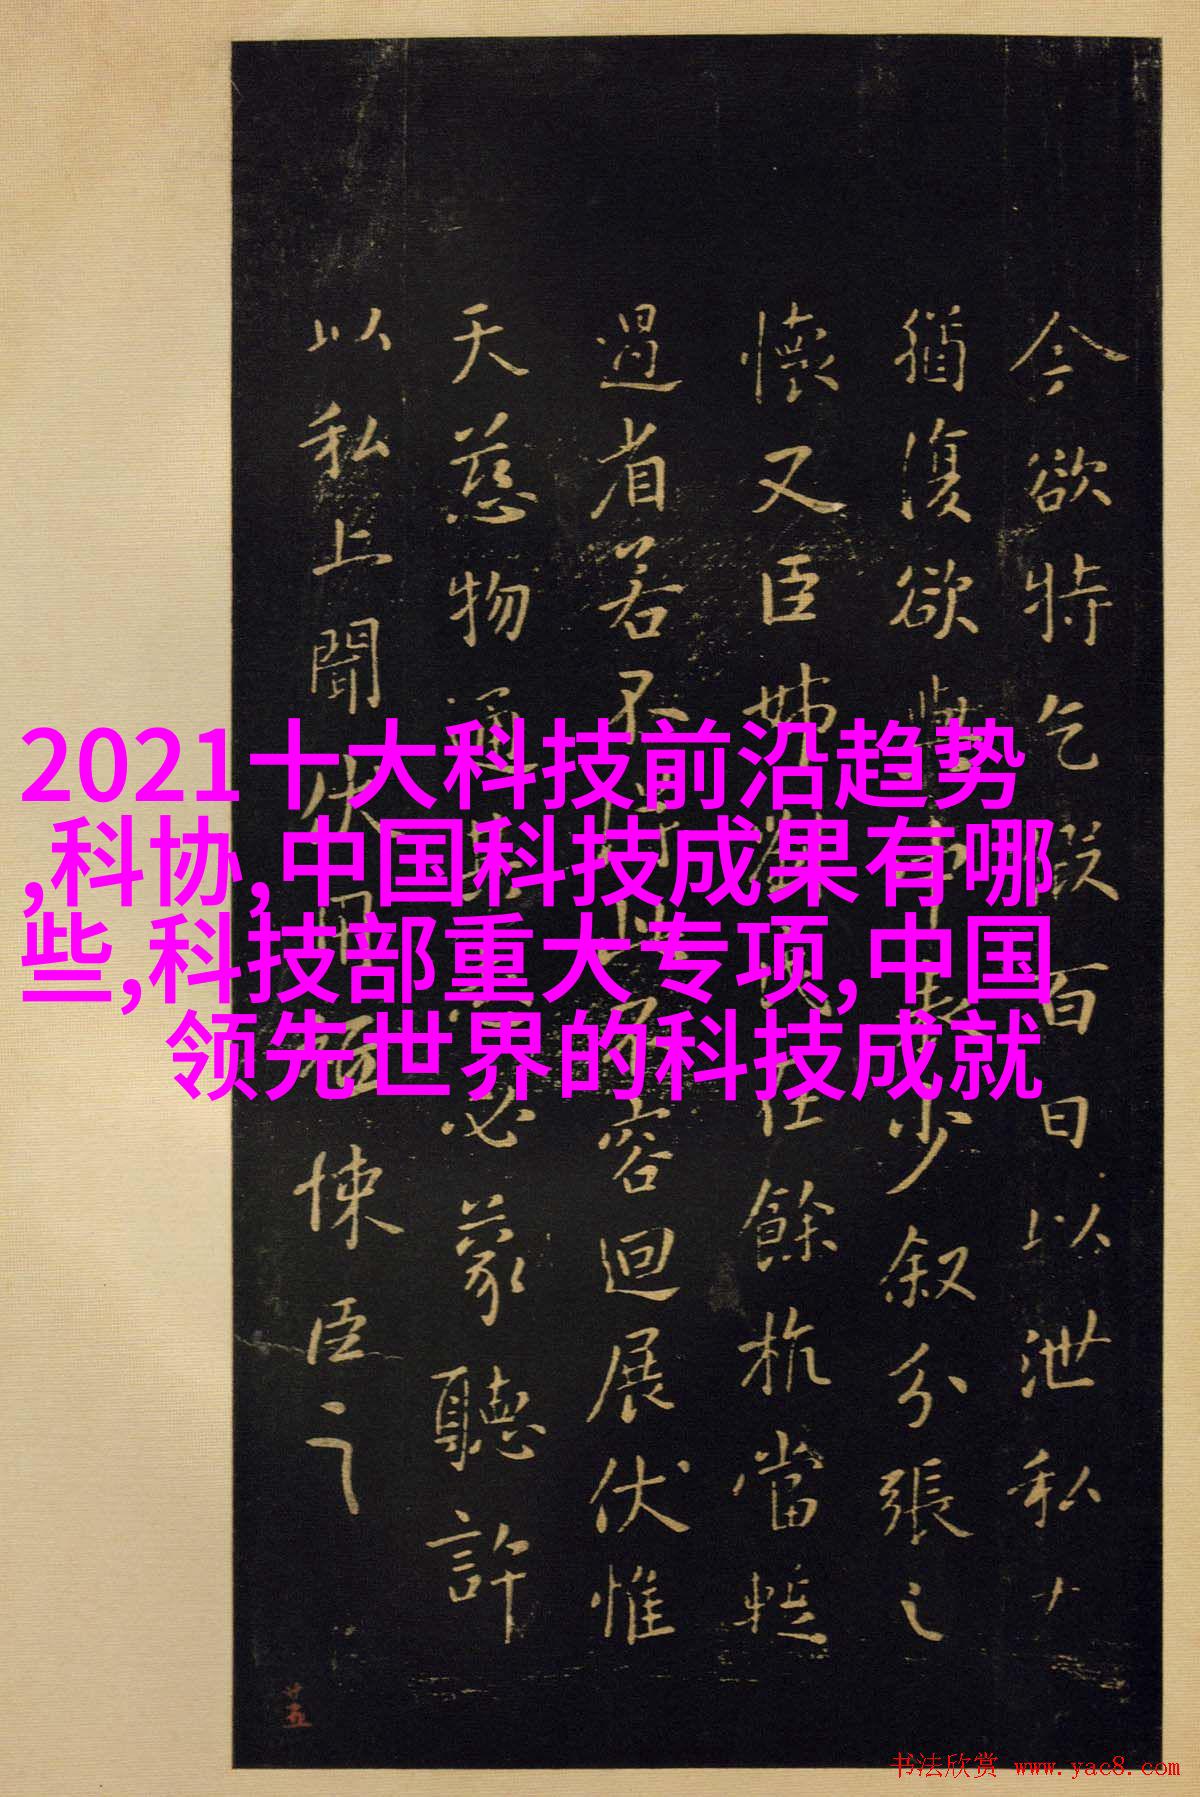 2021十大科技前沿趋势
,科协,中国科技成果有哪
些,科技部重大专项,中国
领先世界的科技成就
今欲特乞假百日以泄私
猶復欲少叙分張之
懷又臣姊在餘杭當暫
過省若不容迴展伏惟
天慈物通必蒙聽許
以私上聞伏悚臣之
书法欣赏 www.yac8.com